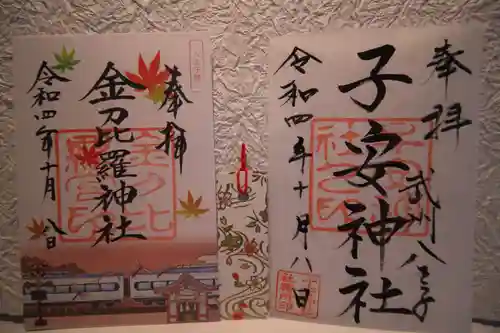 奉拝
金刀比羅神社
令和四年十月八日
奉拝
武州八王子
子安神社
令和四年十月八日